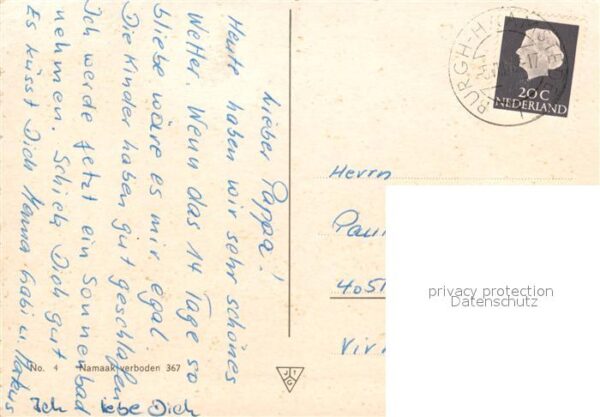 Lieber Pappa!
Heute haben wir sehr schönes
Wetter. Wenn das 14 Tage so
bliebe wäre es mir egal.
Die Kinder haben gut geschlafen
Ich werde jetzt ein Sonnenbad
nehmen. Schick Dich gut
Es küsst Dich Hanna Gabi u. Markus
Ich liebe Dich
No. 4 Namaak verboden 367
BURGH-H
20 C
NEDERLAND
Herrn
Pau
4051
Vi
privacy protection
Datenschutz